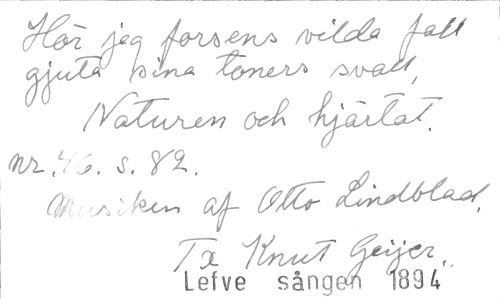 Hör jag forsens vilda fall
gjuta sina toners svall,
Naturen och hjärtat.
nr. 46. s. 82.
Musiken af Otto Lindblad.
Tx Knut Geijer..
Lefve sången 1894